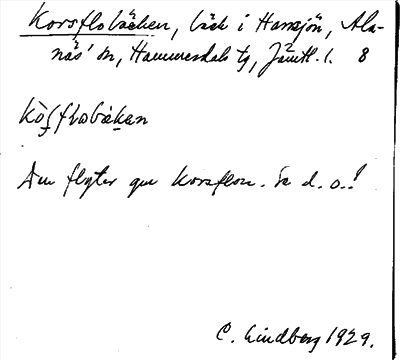 Korsflobäcken, bäck i Hansjön, Ala-
näs' sn, Hammerdals tg, Jämtl. l. 8
Kò̱sfłobäkan
Den flyter gm Korsflon. Se d. o.!
C. Lindberg 1929.